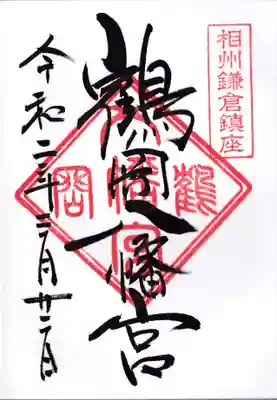 相州鎌倉鎮座
鶴岡八幡宮
鶴岡八幡宮
令和二年三月廿二日